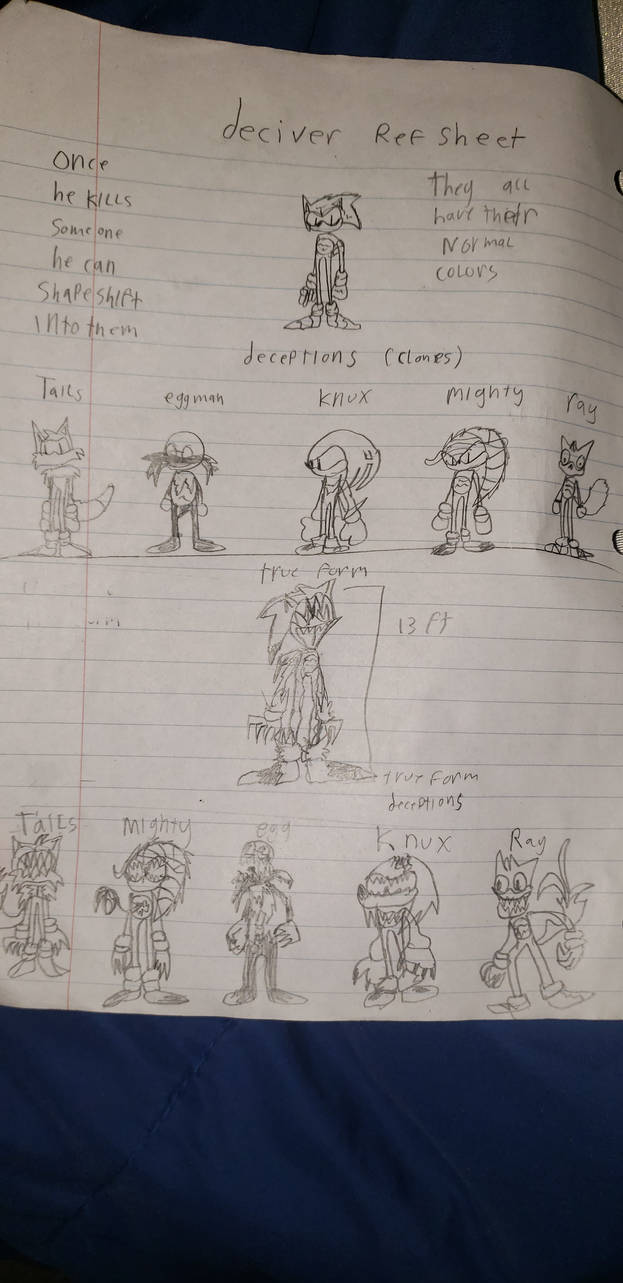 deciver Ref sheet
Once
he kills
Someone
he can
Shapeshift
into them
They all
have their
Normal
colors
deceptions (clones)
Tails eggman Knux mighty ray
true form
13 ft
true form
deceptions
Tails Mighty egg Knux Ray